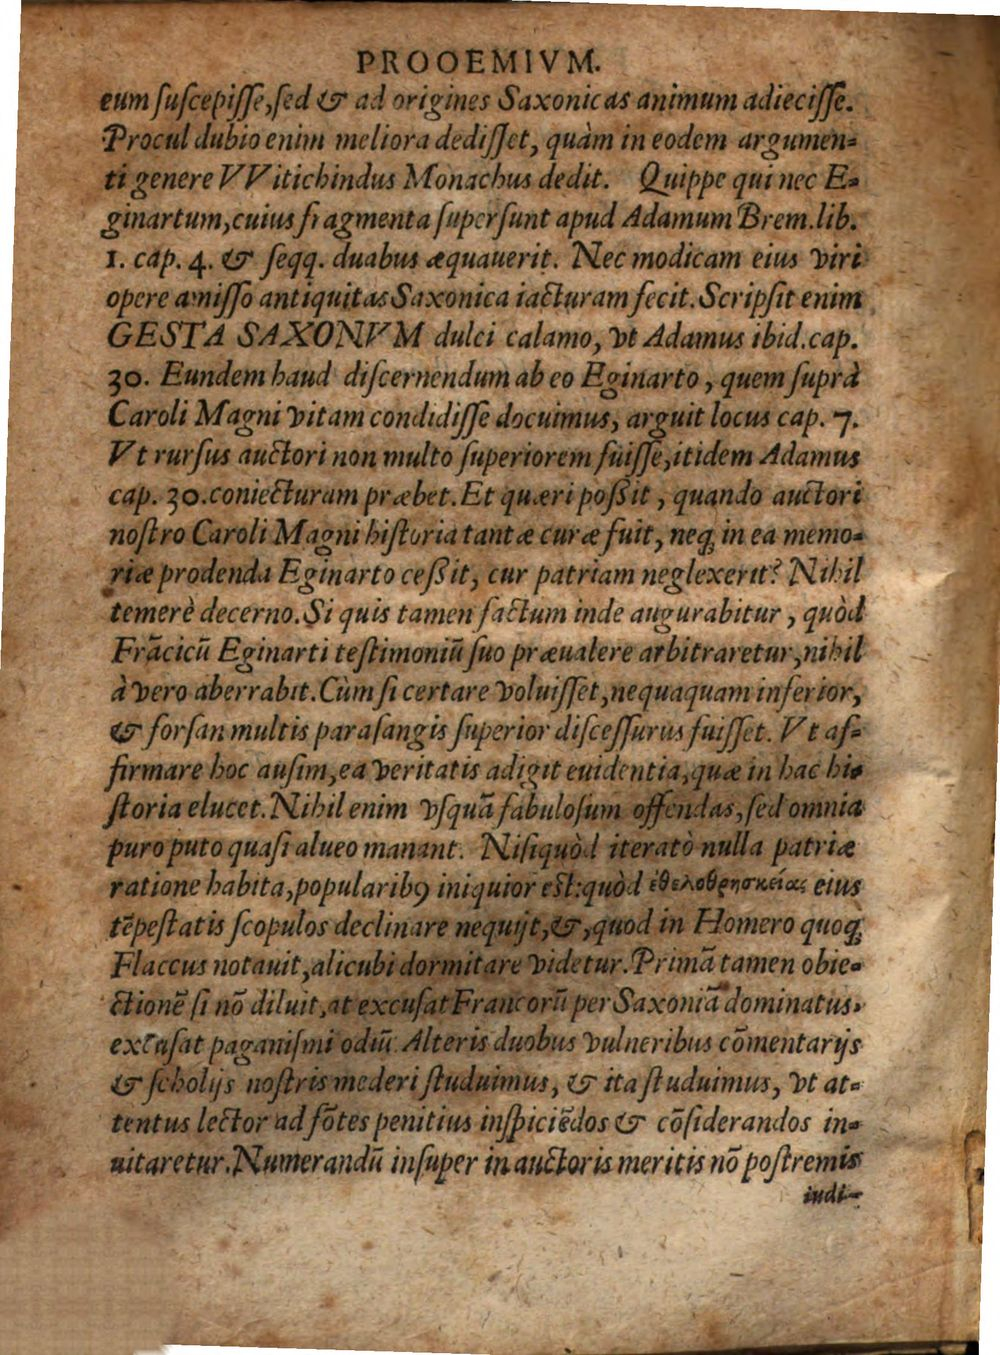 PROOEMIVM.
eum ſuſcepiſſe, ſed & ad origines Saxonicas animum adieciſſe.
Procul dubio enim meliora dediſſet, quàm in eodem argumen-
ti genere VVitichindus Monachus dedit. Quippe qui nec E-
ginartum, cuius fragmenta ſuperſunt apud Adamum Brem. lib.
1. cap. 4. & ſeqq. duabus æquauerit. Nec modicam eius viri
opere amiſſo antiquitas Saxonica iacturam fecit. Scripſit enim
GESTA SAXONVM dulci calamo, vt Adamus ibid. cap.
30. Eundem haud diſcernendum ab eo Eginarto, quem ſuprà
Caroli Magni vitam condidiſſe docuimus, arguit locus cap. 7.
Vt rurſus auctori non multo ſuperiorem fuiſſe, itidem Adamus
cap. 30. coniecturam præbet. Et quæri poßit, quando auctori
noſtro Caroli Magni hiſtoria tantæ curæ fuit, neq; in ea memo-
riæ prodenda Eginarto ceßit, cur patriam neglexerit? Nihil
temerè decerno. Si quis tamen factum inde augurabitur, quòd
Frãcicũ Eginarti teſtimoniũ ſuo præualere arbitraretur, nihil
à vero aberrabit. Cùm ſi certare voluiſſet, nequaquam inferior,
& forſan multis paraſangis ſuperior diſceſſurus fuiſſet. Vt af-
firmare hoc auſim, ea veritatis adigit euidentia, quæ in hac hi-
ſtoria elucet. Nihil enim vſquã fabuloſum offendas, ſed omnia
puro puto quaſi alueo manant. Niſi quòd iteratò nulla patriæ
ratione habita, popularibꝰ iniquior eſt: quòd ἐθελοθρησκείας eius
tẽpeſtatis ſcopulos declinare nequijt, &, quod in Homero quoq;
Flaccus notauit, alicubi dormitare videtur. Primã tamen obie-
ctionẽ ſi nõ diluit, at excuſat Francorũ per Saxoniã dominatus,
excuſat paganiſmi odiũ. Alteris duobus vulneribus cõmentarijs
& ſcholijs noſtris mederi ſtuduimus, & ita ſtuduimus, vt at-
tentus lector ad fõtes penitius inſpiciẽdos & cõſiderandos in-
uitaretur. Numerandũ inſuper in auctoris meritis nõ poſtremis
iudi-